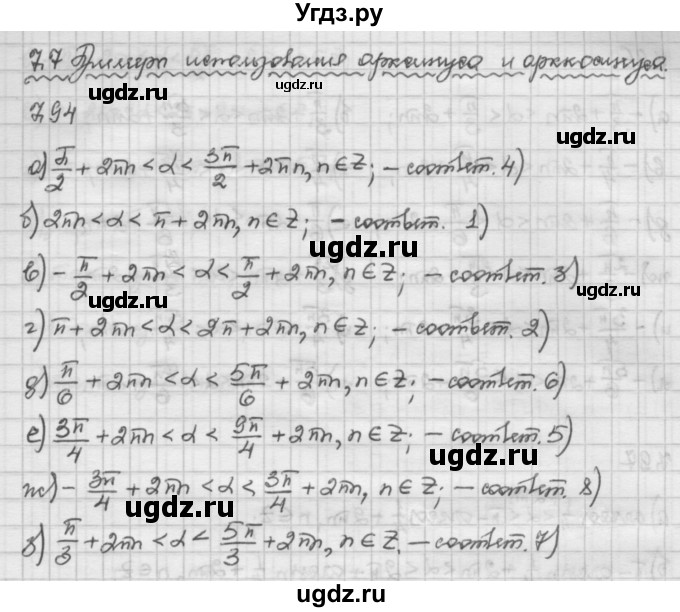 Угдз.ру
7.7 Примеры использования арксинуса и арккосинуса.
ugdz.ru ugdz.ru
7.94
а) π/2 + 2πn < α < 3π/2 + 2πn, n ∈ Z; – соответ. 4)
б) 2πn < α < π + 2πn, n ∈ Z; – соответ. 1)
ugdz.ru
в) – π/2 + 2πn < α < π/2 + 2πn, n ∈ Z; – соответ. 3)
ugdz.ru
г) π + 2πn < α < 2π + 2πn, n ∈ Z; – соответ. 2)
д) π/6 + 2πn < α < 5π/6 + 2πn, n ∈ Z; – соответ. 6)
е) 3π/4 + 2πn < α < 9π/4 + 2πn, n ∈ Z; – соответ. 5)
ugdz.ru
ж) – 3π/4 + 2πn < α < 3π/4 + 2πn, n ∈ Z; – соответ. 8)
ugdz.ru
з) π/3 + 2πn < α < 5π/3 + 2πn, n ∈ Z. – соответ. 7)
ugdz.ru
ugdz.ru